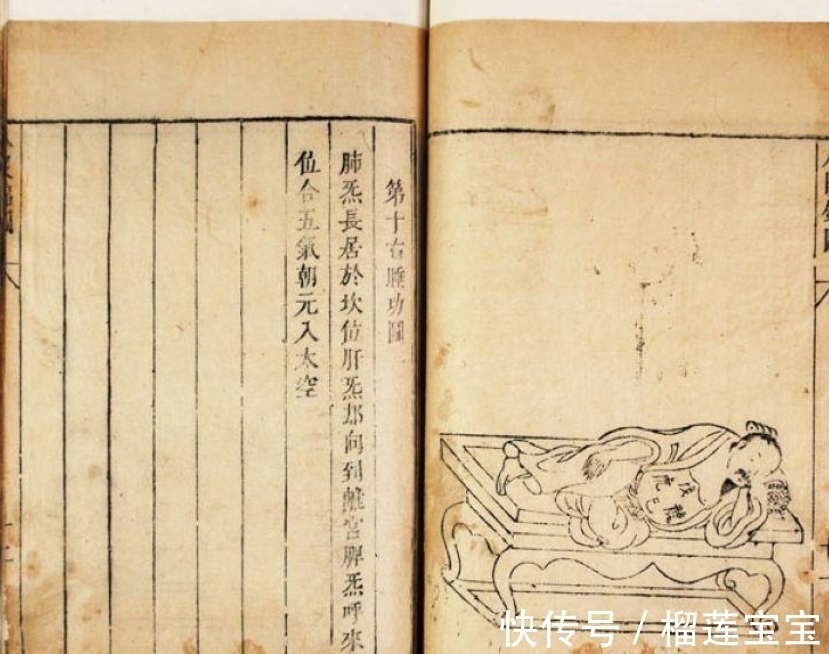 龍
戊己
虎
第十右睡功圖
肺炁長居於坎位肝炁却向到離宮脾炁呼來
位合五氣朝元入太空
快传号 / 榴莲宝宝